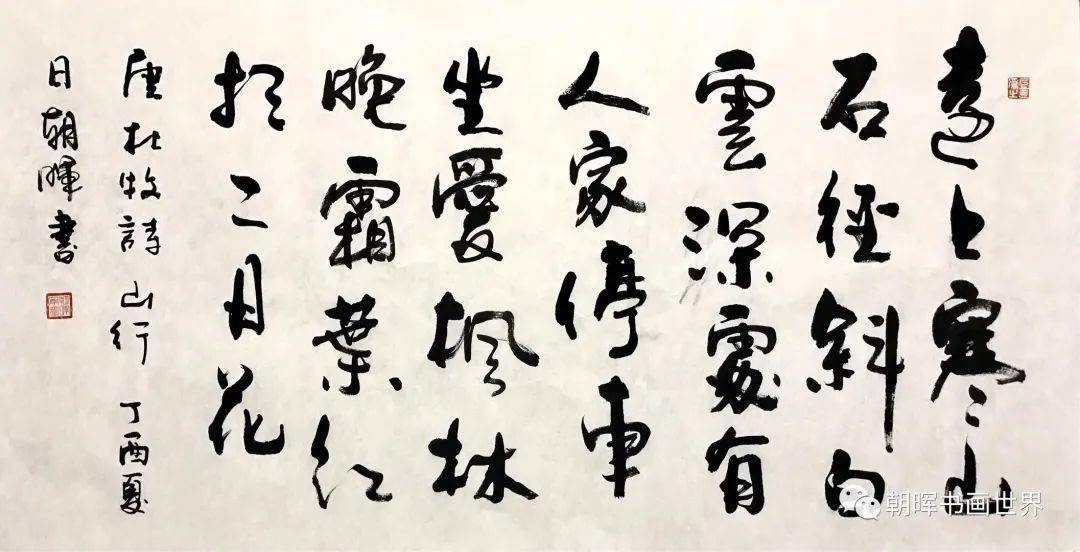 遠上寒山
石徑斜白
雲深處有
人家停車
坐愛楓林
晚霜葉紅
於二月花
唐杜牧詩 山行 丁酉夏
日朝暉書
朝晖书画世界